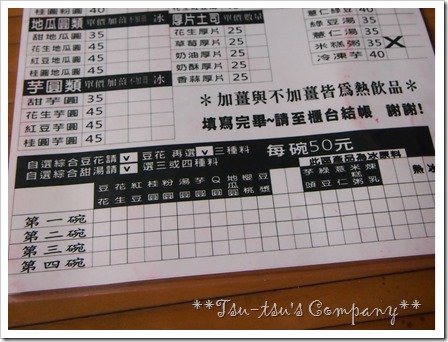 桂圓粉圓 40
地瓜圓類 單價 加薑 冰
甜地瓜圓 35
花生地瓜圓 45
紅豆地瓜圓 45
桂圓地瓜圓 45
芋圓類 單價 加薑 冰
甜芋圓 35
花生芋圓 45
紅豆芋圓 45
桂圓芋圓 45
厚片土司 單價 數量
花生厚片 25
草莓厚片 25
奶油厚片 25
奶酥厚片 25
香蒜厚片 25
薏仁
綠豆湯 35
薏仁湯 35
米糕粥 35
冷凍芋 40
＊加薑與不加薑皆為熱飲品
填寫完畢~請至櫃台結帳 謝謝!
自選綜合豆花請 v 豆花 再選 v 三種料
自選綜合甜湯請 v 選三或四種料
每碗50元
花生 豆花 紅豆 桂圓 粉圓 湯圓 芋圓 Q圓 地瓜圓 櫻桃 豆漿
芋頭 綠豆 薏仁 米糕粥 煉乳
第一碗
第二碗
第三碗
第四碗
**Tsu-tsu's Company**